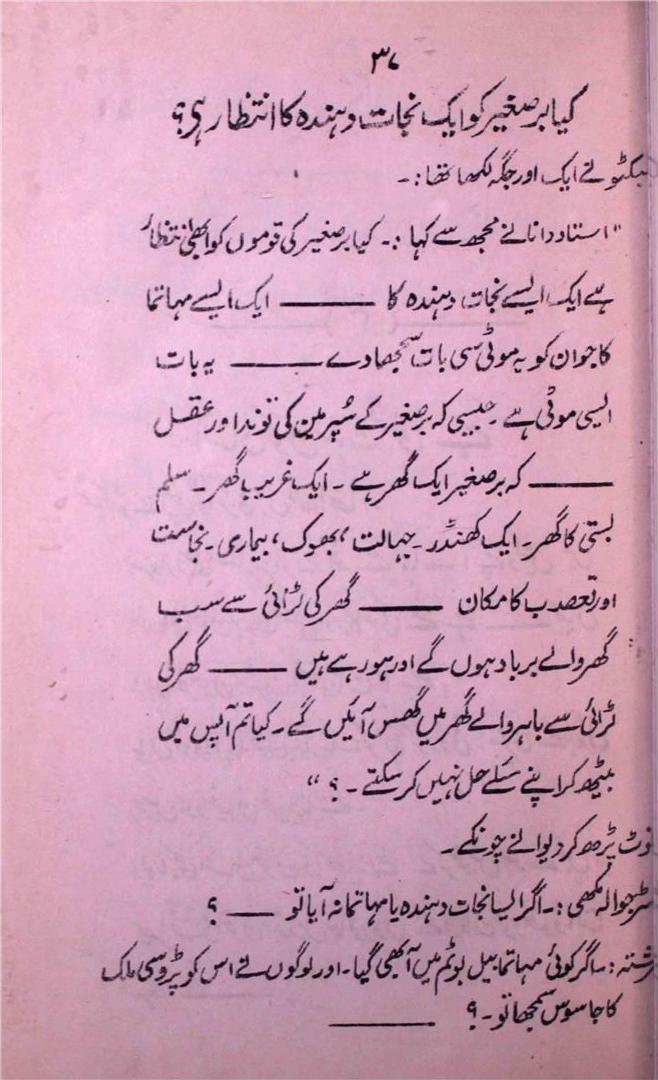 ۳۷
کیا برصغیر کو ایک نجات دہندہ کا انتظار ہی؟
نے ایک اور جگہ لکھا تھا :۔
"استاد دانا نے مجھ سے کہا :۔ کیا برصغیر کی قوموں کو ابھی انتظار
ہے ایک ایسے نجات دہندہ کا ——— ایک ایسے مہاتما
کا جو ان کو یہ موٹی سی بات سمجھا دے ——— یہ بات
ایسی موٹی ہے ۔ جیسی کہ برصغیر کے سُپرمین کی توند اور عقل
——— کہ برصغیر ایک گھر ہے ۔ ایک غریب گھر ۔ سلم
بستی کا گھر ۔ ایک کھنڈر ۔ جہالت ، بھوک ، بیماری ۔ نجاست
اور تعصب کا مکان ——— گھر کی لڑائی سے سب
گھر والے برباد ہوں گے اور ہو رہے ہیں ——— گھر کی
لڑائی سے باہر والے گھر میں گھس آئیں گے ۔ کیا تم آپس میں
بیٹھ کر اپنے مسئلے حل نہیں کر سکتے ۔ ؟ "
نوٹ پڑھ کر دیوانے چونکے ۔
جوالہ مکھی :۔ اگر ایسا نجات دہندہ یا مہاتما نہ آیا تو ——— ؟
اگر کوئی مہاتما بیل بوٹم میں آ بھی گیا ۔ اور لوگوں نے اس کو پڑوسی ملک
کا جاسوس سمجھا تو ۔ ؟ ———